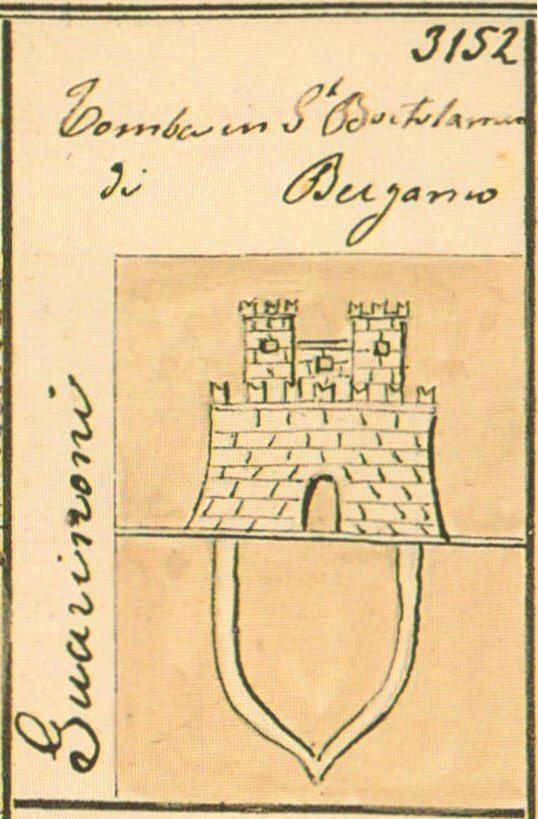 3152
Tomba in St Bortolameo
di Bergamo
Guarinoni